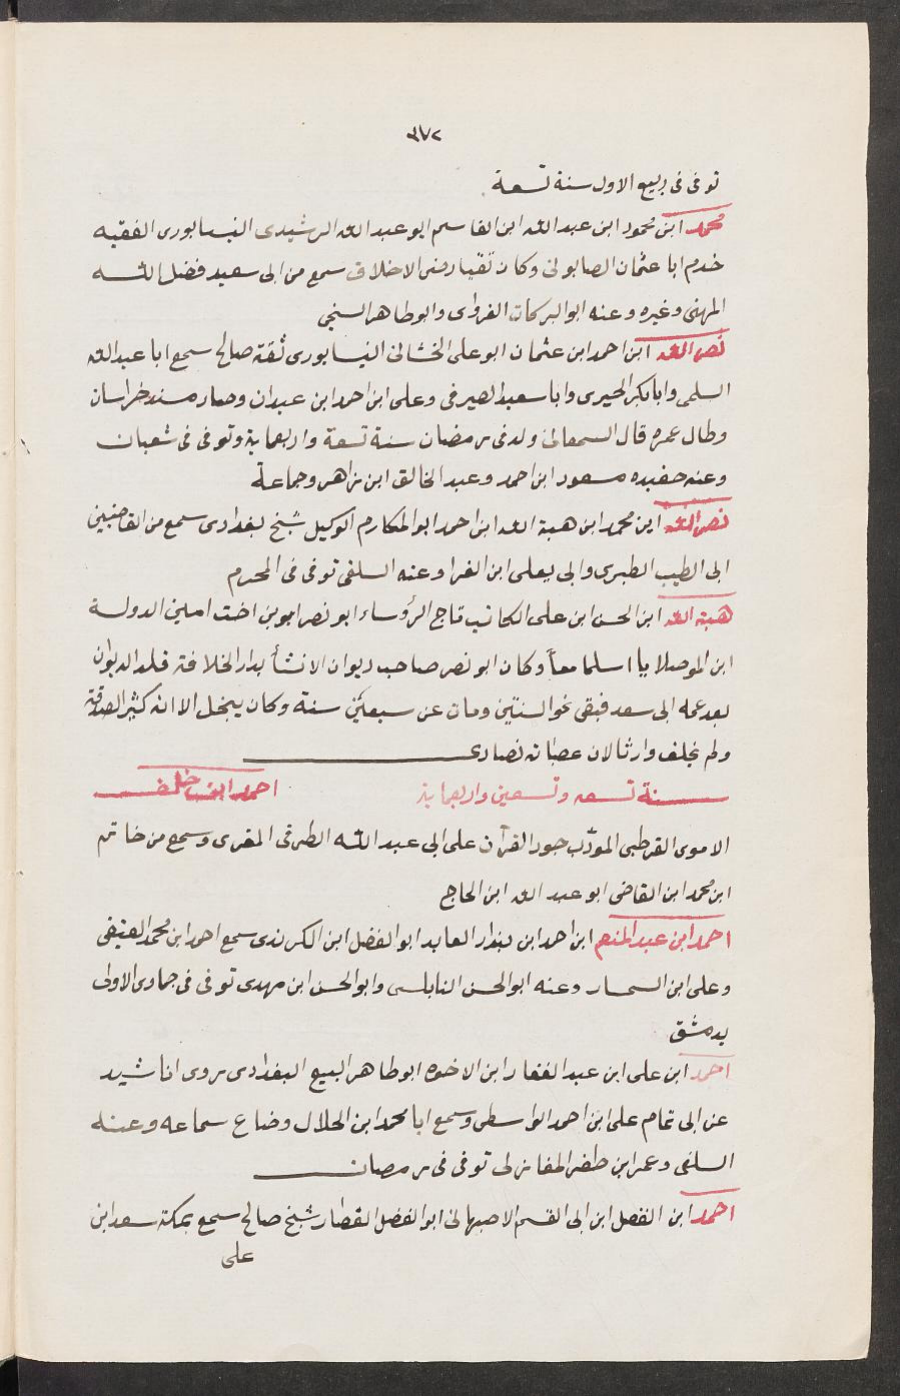 ٣٧٢
توفى فى ربيع الاول سنة تسعة
محمد ابن محمود ابن عبد الله ابن القاسم ابو عبد الله الرشيدى النيسابورى الفقيه
خدم ابا عثمان الصابونى وكان تقيا رضى الاخلاق سمع من ابى سعيد فضل الله
المهنى وغيره وعنه ابو البركات الفراوى وابو طاهر السنجى
نصر الله ابن احمد ابن عثمان ابو على الخشنانى النيسابورى ثقة صالح سمع ابا عبد الله
السلمى وابا بكر الحيرى وابا سعيد الصيرفى وعلى ابن احمد ابن عبدان وصار مسند خراسان
وطال عمره قال السمعانى ولد فى رمضان سنة تسعة واربعماية وتوفى فى شعبان
وعنه حفيده مسعود ابن احمد وعبد الخالق ابن زاهر وجماعة
نصر الله ابن محمد ابن هبة الله ابن احمد ابو المكارم الوكيل شيخ بغدادى سمع من القاضيين
ابى الطيب الطبرى وابى يعلى ابن الفرا وعنه السلفى توفى فى المحرم
هبة الله ابن الحسن ابن على الكاتب تاج الرؤساء ابو نصر ابن اخت امين الدولة
ابن الموصلايا اسلما معاً وكان ابو نصر صاحب ديوان الانشأ بدار الخلافة قلد الديوان
بعد عمه ابى سعد فبقى نحو السنتين ومات عن سبعين سنة وكان يبخل الا انه كثير الصدقة
ولم يخلف وارثا لان عصباته نصارى
سنة تسعه وتسعين واربعماية احمد ابن خلف
الاموى القرطبى المودّب جود القرآن على ابى عبد الله الطرفى المقرى وسمع من حاتم
ابن محمد ابن القاضى ابو عبد الله ابن الحاج
احمد ابن عبد المنعم ابن احمد ابن بندار العابد ابو الفضل ابن الكرندى سمع احمد ابن محمد العتيقى
وعلى ابن السمسار وعنه ابو الحسن النابلسى وابو الحسن ابن مهدى توفى فى جمادى الاولى
بدمشق
احمد ابن على ابن عبد الغفار ابن الاخوه ابو طاهر البيع البغدادى روى اناشيد
عن ابى تمام على ابن احمد الواسطى وسمع ابا محمد ابن الخلال وضاع سماعه وعنه
السلفى وعمر ابن ظفر المغازلى توفى فى رمضان
احمد ابن الفضل ابن ابى القسم الاصبهانى ابو الفضل القطار شيخ صالح سمع بمكة سعد ابن
على